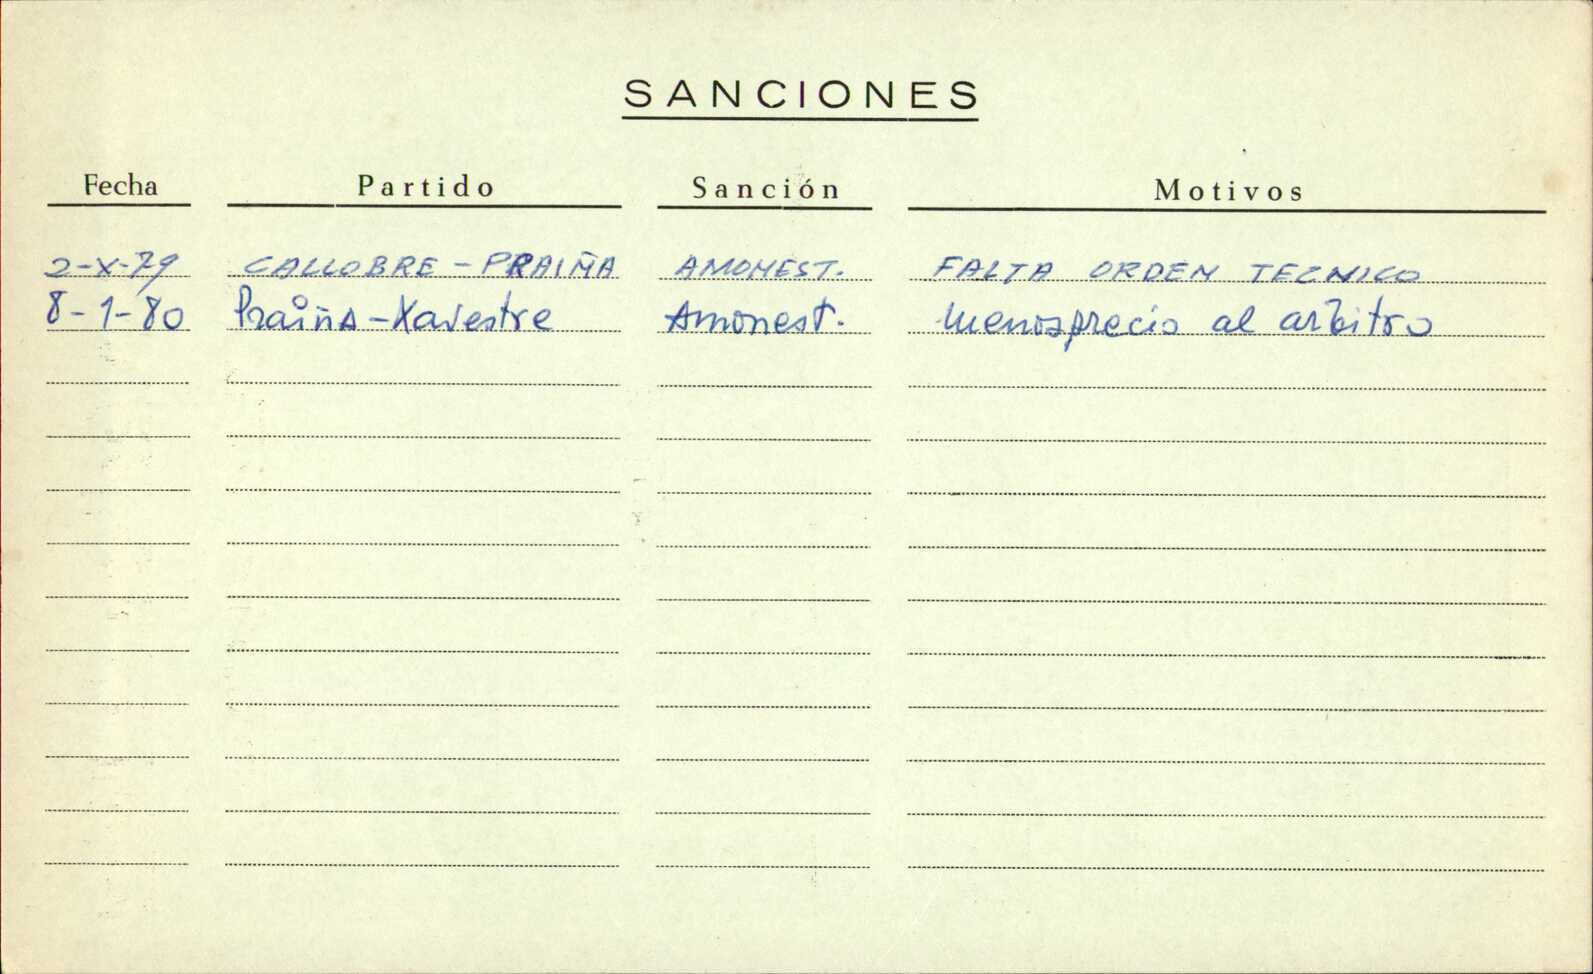 SANCIONES
Fecha Partido Sanción Motivos
2-X-79 CALLOBRE - PRAIÑA AMONEST. FALTA ORDEN TECNICO
8-1-80 Praiña - Xavestre Amonest. Menosprecio al arbitro